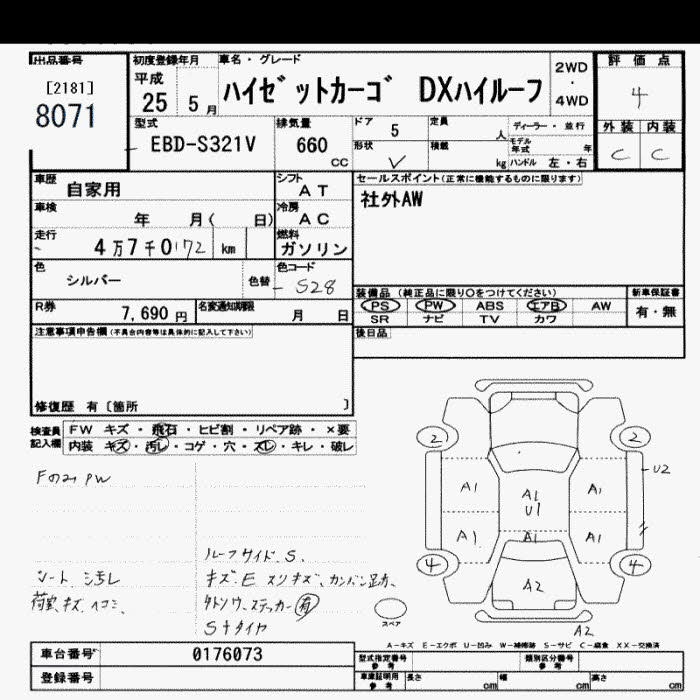 出品番号 初度登録年月 車名・グレード 2WD 評価点
[2181] 平成 ハイゼットカーゴ DXハイルーフ 4
8071 25 5月 4WD 外装 内装
型式 排気量 ドア 5 定員 人 ディーラー・並行 C C
EBD-S321V 660 CC 形状 V 積載 kg モデル年式 年 ハンドル 左・右
車歴 自家用 シフト AT セールスポイント(正常に機能するものに限ります)
車検 年 月( 日) 冷房 AC 社外AW
走行 4万7千0172 km 燃料 ガソリン
色 シルバー 色替 色コード S28 装備品 (純正品に限り○をつけてください) 新車保証書
R券 7,690円 名変通知期限 月 日 PS PW ABS エアB AW 有・無
SR ナビ TV カワ
注意事項申告欄(不具合内容等は具体的に記入して下さい) 後日品
修復歴 有〔箇所 〕
検査員記入欄 FW キズ・飛石・ヒビ割・リペア跡・×要
内装 キズ・汚レ・コゲ・穴・スレ・キレ・破レ
Fのみ PW
2 2
U2
A1 A1 A1
U1
A1 A1 A1
4 4
A2
スペア
A2
ルーフサイド S、
シート シ汚レ キズ.E スリキズ、カンバン跡、
荷室キズ ヘコミ、 ステッカー 有
Sナタイヤ
A-キズ E-エクボ U-凹み W-補修跡 S-サビ C-腐食 XX-交換済
車台番号 0176073 型式指定番号 参考 類別区分番号 参考
登録番号 車庫証明用 参考 長さ cm 幅 cm 高さ cm